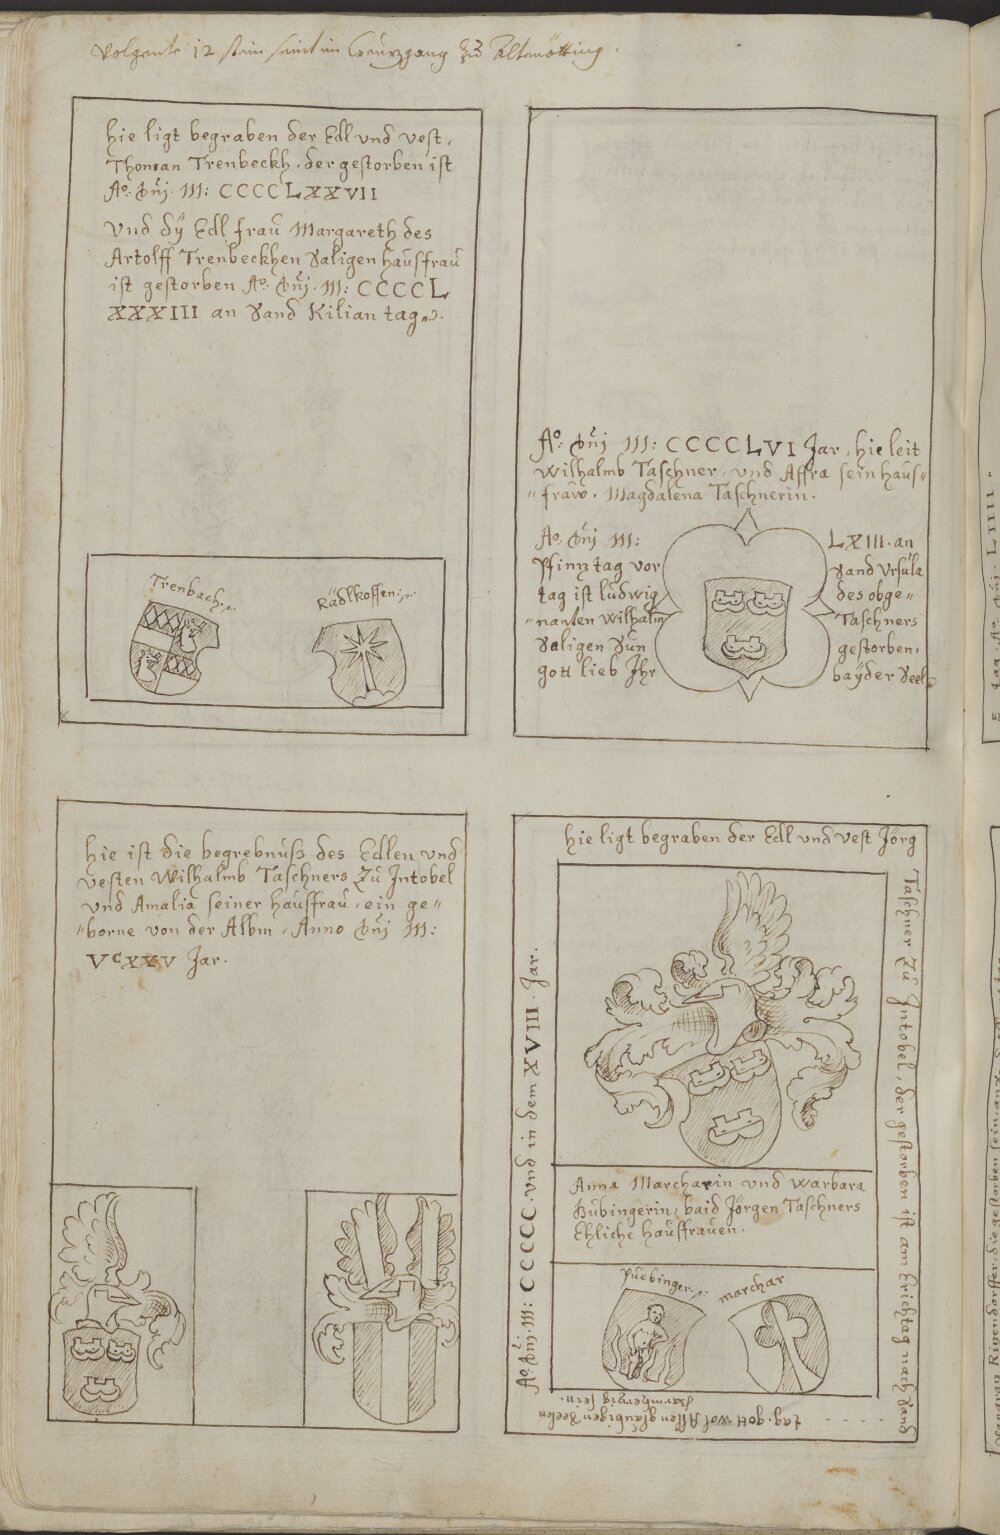 Volgente 12 stain seint im Creüzgang Zü Altenötting.
Hie ligt begraben der Edl vnd vest,
Thoman Trenbeckh, der gestorben ist
Aº: Dnj. M: CCCCLXXVII
Vnd dÿ Edl fraü Margareth des
Artolff Trenbeckhen Saligen Haüsfraü
ist gestorben Aº: Dnj. M: CCCCL
XXXIII an Sand Kilian tag.
Trenbach
Rädlkoffen
Aº: Dnj M: CCCCLVI Jar, hie leit
Wilhalmb Taschner, vnd Affra sein haus„
„fraw. Magdalena Taschnerin.
Aº: Dnj M: LXIII. an
Pfinztag vor Sand Vrsüla
tag ist lüdwig des obge„
„nanten Wilhalm Taschners
Saligen Sün gestorben,
gott lieb Jhr baÿder Seel
Hie ist die begrebnüß des Edlen vnd
vesten Wilhalmb Taschners Zü Intobel
vnd Amalia seiner haüsfraü, ein ge„
„borne von der Albm, Anno Dnj M:
VᶜXXV Jar.
Hie ligt begraben der Edl vnd vest Jörg
Taschner Zü Intobel, der gestorben ist am Erichtag nach Sand
. . . . tag. gott wol Allen glaübigen Seelen
barmherzig sein.
Aº: Dnj. M: CCCCC. vnd in dem XVIII. Jar.
Anna Marcharin vnd Warbara
Pübingerin, baid Jörgen Taschners
Ehliche haüsfraüen.
Püebinger
marchar